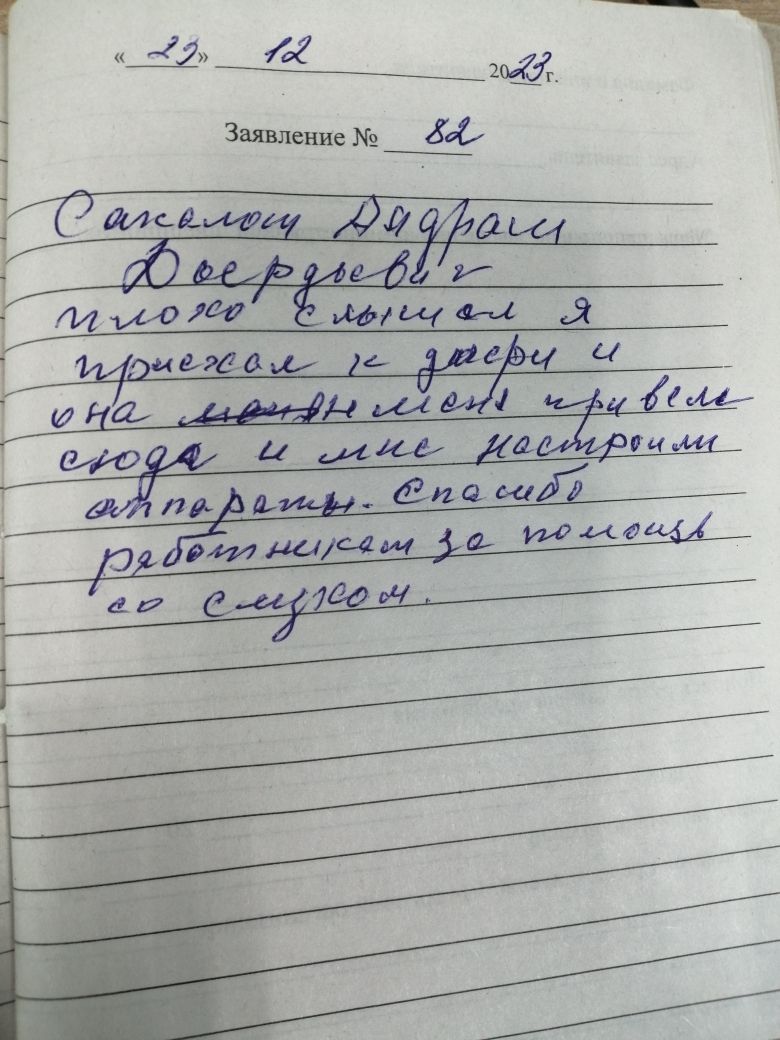 «23» 12 2023 г.
Заявление № 82
плохо слышал я
приехал к дочери и
она меня привела
сюда и мне настроили
аппараты. Спасибо
работникам за помощь
со слухом.